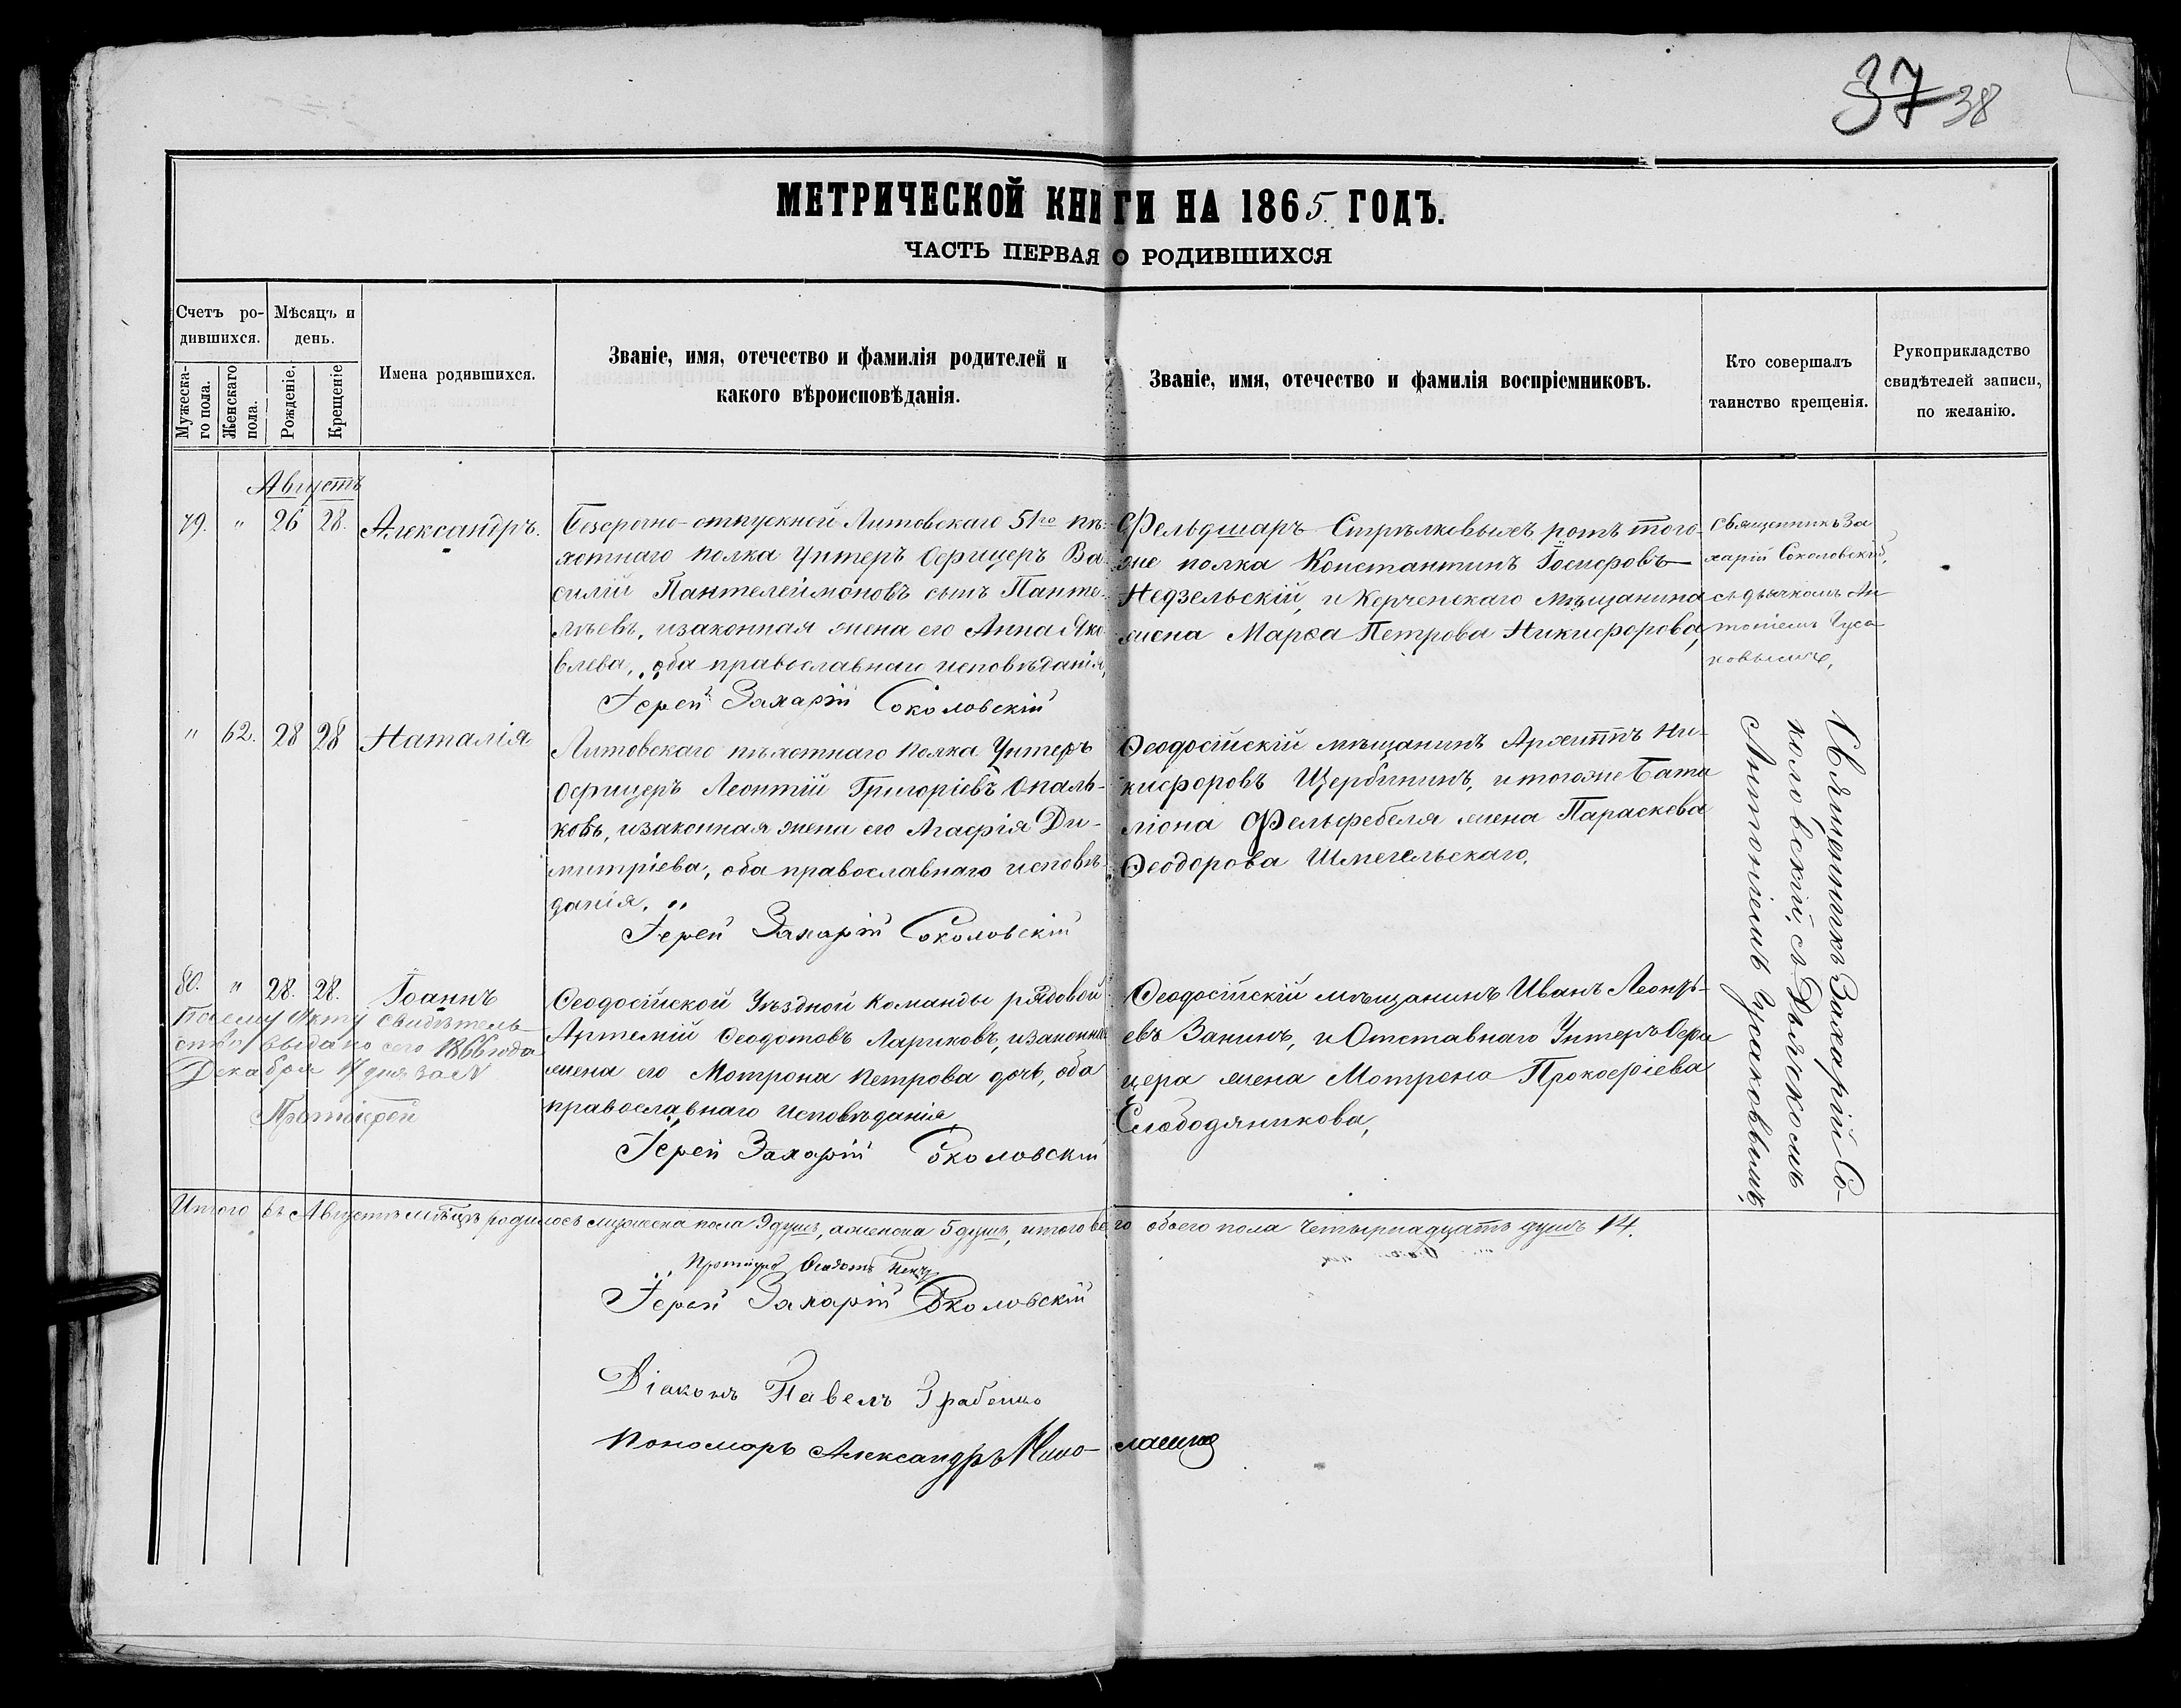 37 38
МЕТРИЧЕСКОЙ КНИГИ НА 1865 ГОДЪ.
ЧАСТЬ ПЕРВАЯ О РОДИВШИХСЯ
Счетъ ро-
дившихся.
Мужеска-
го пола.
Женскаго
пола.
Мѣсяцъ и
день.
Рожденіе.
Крещеніе
Имена родившихся.
Званіе, имя, отечество и фамилія родителей и
какого вѣроисповѣданія.
Званіе, имя, отечество и фамилія воспріемниковъ.
Кто совершалъ
таинство крещенія.
Рукоприкладство
свидѣтелей записи,
по желанію.
Августъ
79. " 26 28. Александръ.
Безсрочно-отпускной Литовскаго 51го пѣ-
хотнаго полка Унтеръ Офицеръ Ва-
силій Пантелеймоновъ сынъ Панте-
лѣевъ, изаконная жена его Анна Яко-
влева, оба православнаго исповѣданія,
Іерей Захарій Соколовскій
Фельдшаръ Стрѣлковыхъ ротъ того-
же полка Константинъ Іосифовъ
Недзельскій, и Керченскаго мѣщанина
жена Марѳа Петрова Никифорова,
Священникъ За
харій Соколовскій,
съ дьячкомъ Ан
тоніемъ Гуса
ковымъ,
" 62. 28 28 Наталія
Литовскаго пѣхотнаго полка Унтеръ
Офицеръ Леонтій Григоріевъ Опаль-
ковъ, изаконная жена его Агафія Ди-
митріева, оба православнаго исповѣ-
данія.
Іерей Захарій Соколовскій
Ѳеодосійскій мѣщанинъ Архиппъ Ни-
кифоровъ Щербининъ, и тогоже Бата
ліона Фельфебеля жена Параскева
Ѳеодорова Шмегельскаго,
Священникъ Захарій Со-
коловскій, съ Дьячкомъ
Антоніемъ Гусаковымъ,
80. " 28. 28. Іоаннъ
Посему Акту свидѣтель-
ство выдано сего 1866 года
Декабря 17 дня за №
Протоіерей
Ѳеодосійской Уѣздной Команды рядовой
Артемій Ѳеодотовъ Лариковъ, изаконная
жена его Мотрона Петрова дочь, оба
православнаго исповѣданія
Іерей Захарій Соколовскій
Ѳеодосійскій мѣщанинъ Иванъ Леонть-
евъ Занинъ, и Отставнаго Унтеръ Офи
цера жена Мотрена Прокофіева
Слободяникова,
Итого въ Августѣ мѣсяцѣ родилось мужеска пола 9 душъ, а женска 5 душъ, итого всего обоего пола четырнадцать душъ 14.
Протоіерей Ѳеодотъ
Іерей Захарій Соколовскій
Діаконъ Павелъ
Пономарь Александръ